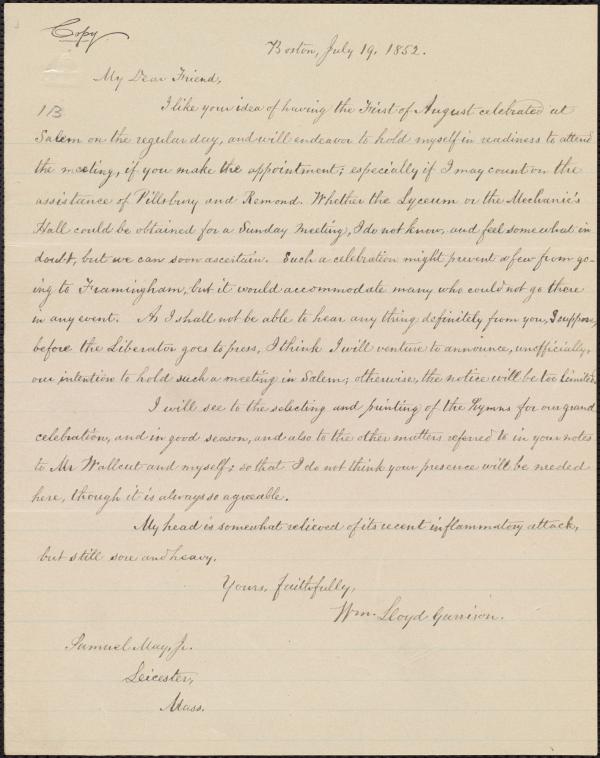 Copy
Boston, July 19, 1852.
My Dear Friend,
1B
I like your idea of having the First of August celebrated at
Salem on the regular day, and will endeavor to hold myself in readiness to attend
the meeting, if you make the appointment; especially if I may count on the
assistance of Pillsbury and Remond. Whether the Lyceum or the Mechanic's
Hall could be obtained for a Sunday meeting, I do not know, and feel somewhat in
doubt, but we can soon ascertain. Such a celebration might prevent a few from go-
ing to Framingham, but it would accommodate many who could not go there
in any event. As I shall not be able to hear any thing definitely from you, I suppose,
before the Liberator goes to press, I think I will venture to announce, unofficially,
our intention to hold such a meeting in Salem; otherwise, the notice will be too limited.
I will see to the selecting and printing of the hymns for our grand
celebration, and in good season, and also to the other matters referred to in your notes
to Mr Wallcut and myself; so that I do not think your presence will be needed
here, though it is always so agreeable.
My head is somewhat relieved of its recent inflammatory attack,
but still sore and heavy.
Yours, faithfully,
Wm. Lloyd Garrison.
Samuel May, Jr.
Leicester,
Mass.